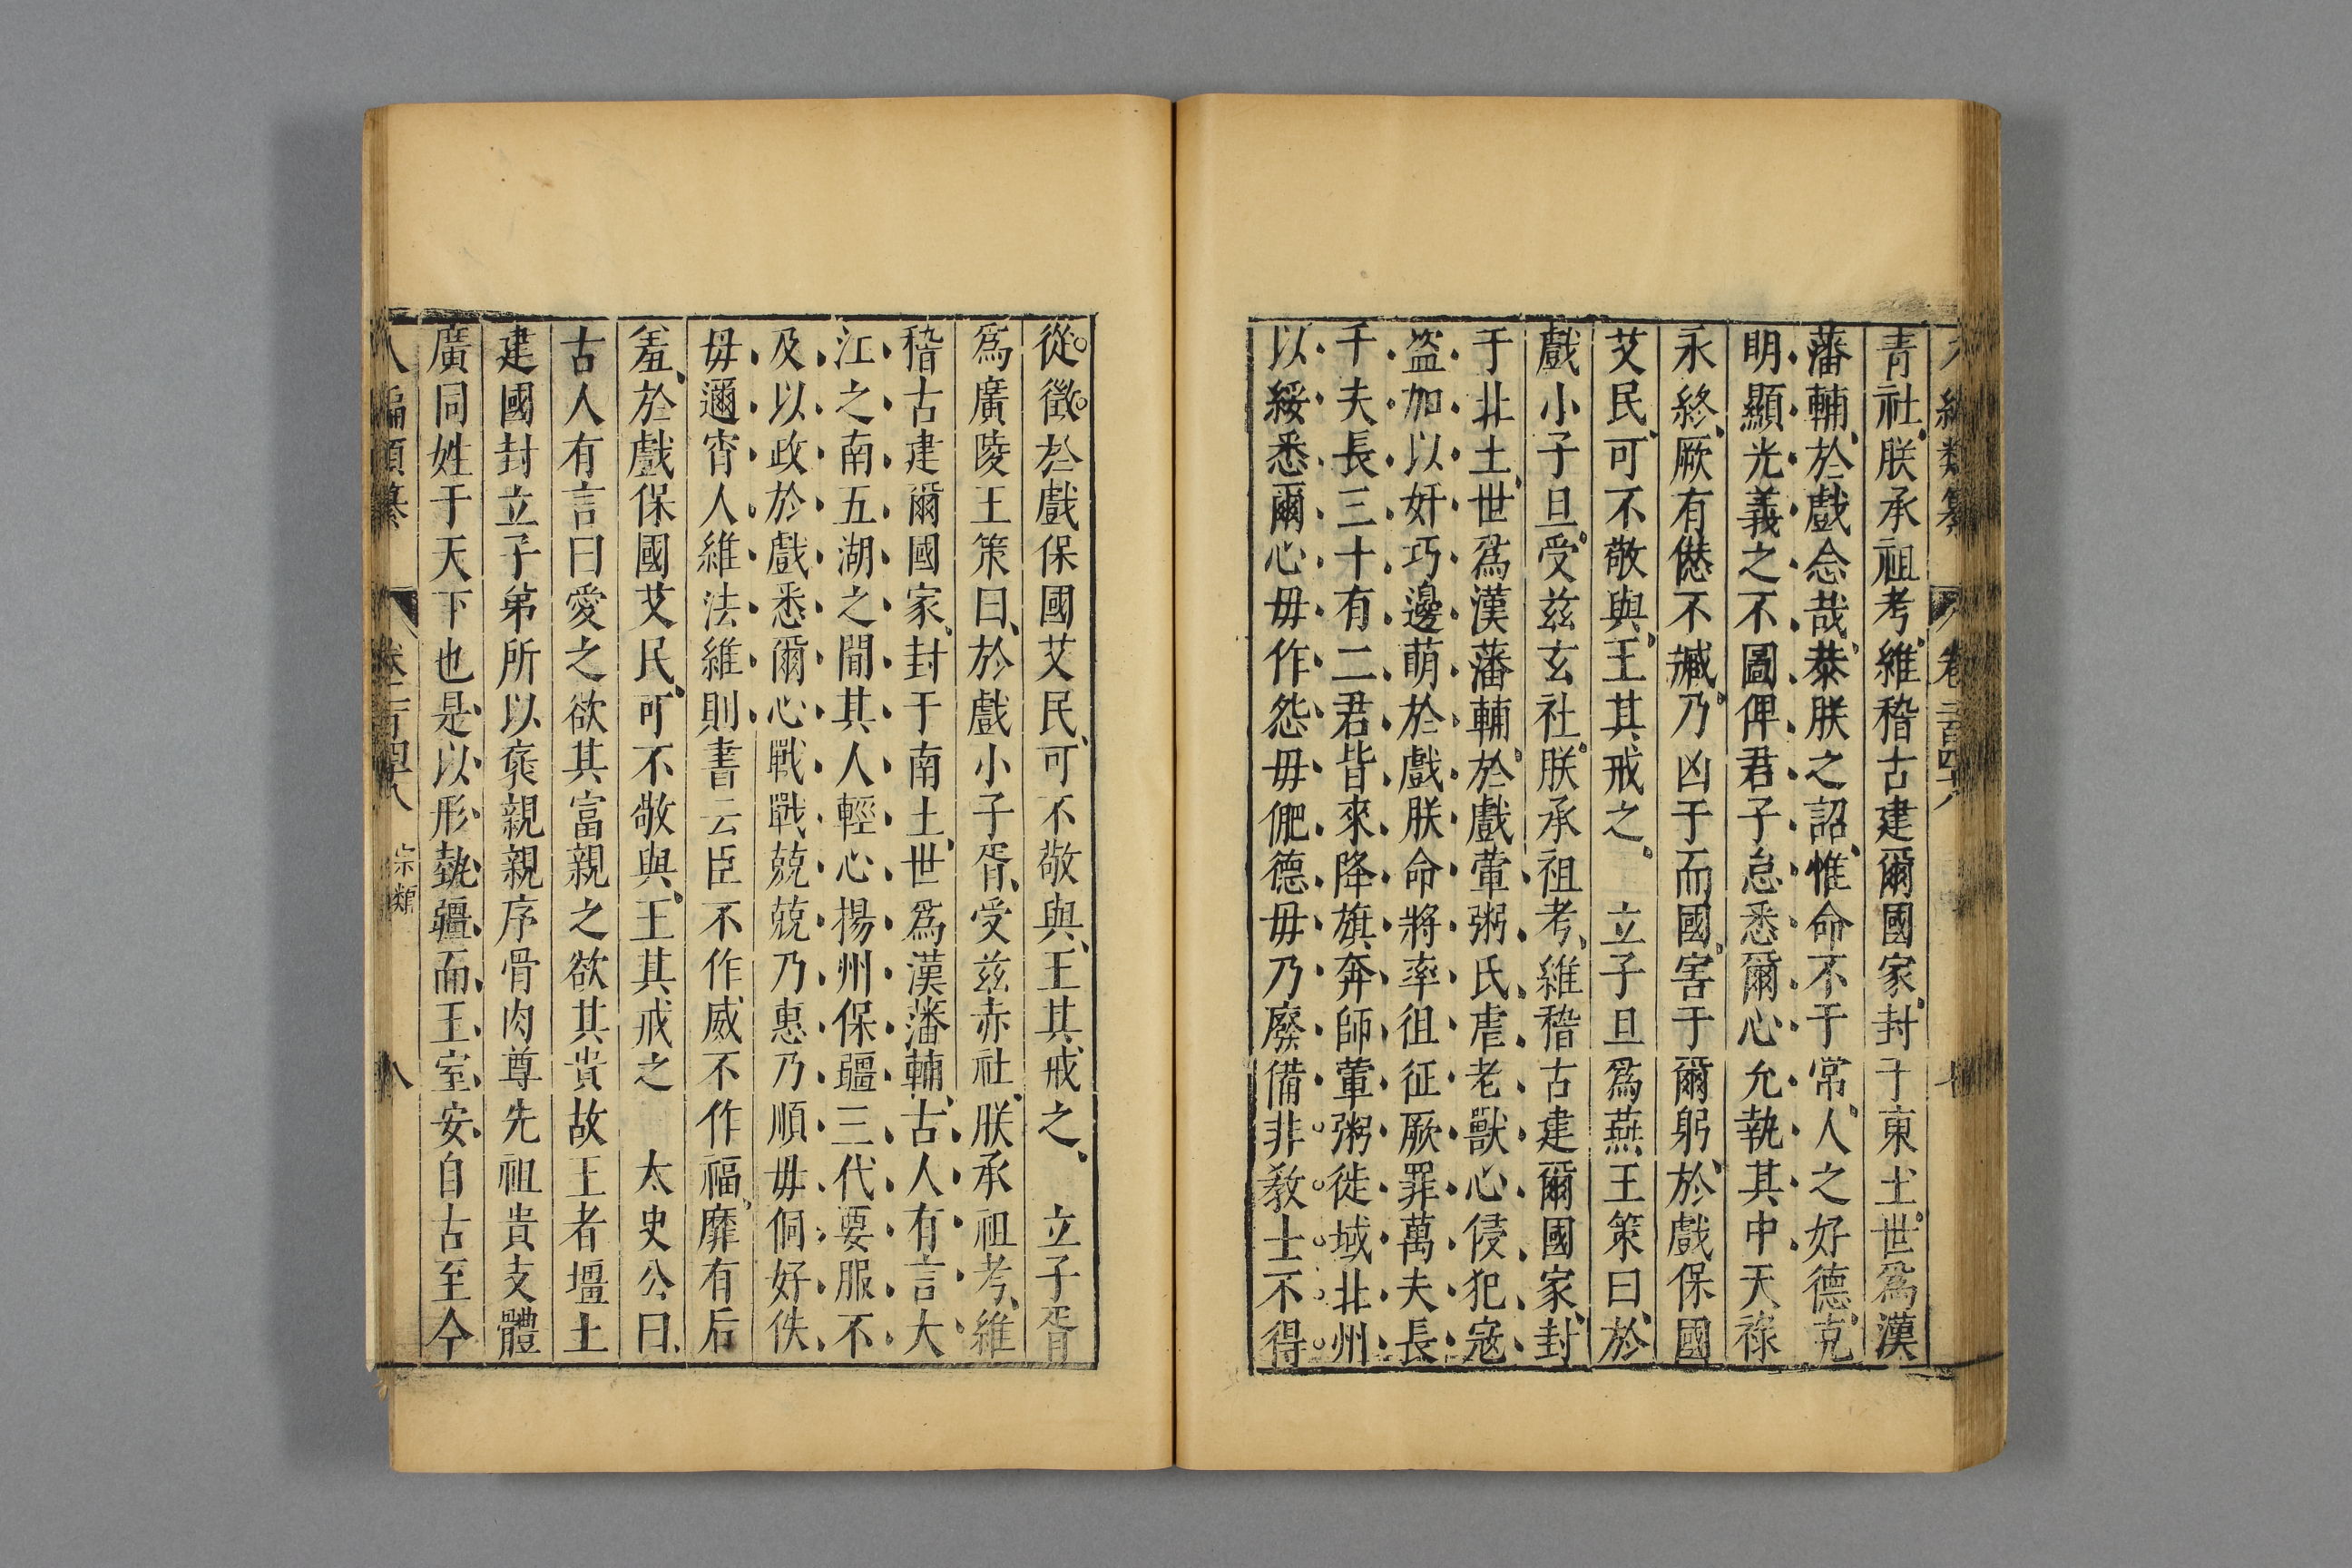 八編類纂 卷二百四十八 七
青社朕承祖考維稽古建爾國家封于東土世爲漢
藩輔於戲念哉恭朕之詔惟命不于常人之好德克
明顯光義之不圖俾君子怠悉爾心允執其中天祿
永終厥有𠎝不臧乃凶于而國害于爾躬於戲保國
艾民可不敬與王其戒之 立子旦爲燕王策曰於
戲小子旦受茲玄社朕承祖考維稽古建爾國家封
于北土世爲漢藩輔於戲葷粥氏虐老獸心侵犯寇
盜加以奸巧邊萌於戲朕命將率徂征厥罪萬夫長
千夫長三十有二君皆來降旗奔師葷粥徙域北州
以綏悉爾心毋作怨毋俷德毋乃廢備非教士不得
從徵於戲保國艾民可不敬與王其戒之 立子胥
爲廣陵王策曰於戲小子胥受茲赤社朕承祖考維
稽古建爾國家封于南土世爲漢藩輔古人有言大
江之南五湖之間其人輕心揚州保疆三代要服不
及以政於戲悉爾心戰戰兢兢乃惠乃順毋侗好佚
毋邇宵人維法維則書云臣不作威不作福靡有后
羞於戲保國艾民可不敬與王其戒之 太史公曰
古人有言曰愛之欲其富親之欲其貴故王者壃土
建國封立子弟所以褒親親序骨肉尊先祖貴支體
廣同姓于天下也是以形埶疆而王室安自古至今
八編類纂 卷二百四十八 宗類 八